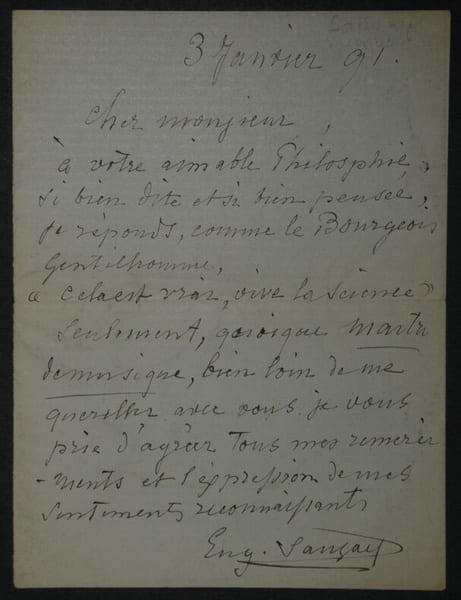 3 Janvier 91.
Cher monsieur,
à votre aimable Philosphie,
si bien dite et si bien pensée,
je réponds, comme le Bourgeois
Gentilhomme,
« cela est vrai, vive la Science »
Seulement, quoique maitre
de musique, bien loin de me
quereller avec vous je vous
prie d'agréer tous mes remerci
-ments et l'expression de mes
sentiments reconnaissants
Eug. Sauzay